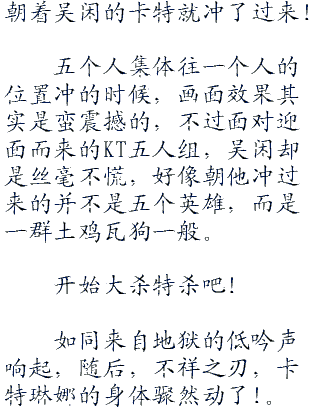 朝着吴闲的卡特就冲了过来！
五个人集体往一个人的
位置冲的时候，画面效果其
实是蛮震撼的，不过面对迎
面而来的KT五人组，吴闲却
是丝毫不慌，好像朝他冲过
来的并不是五个英雄，而是
一群土鸡瓦狗一般。
开始大杀特杀吧！
如同来自地狱的低吟声
响起，随后，不祥之刃，卡
特琳娜的身体骤然动了！。